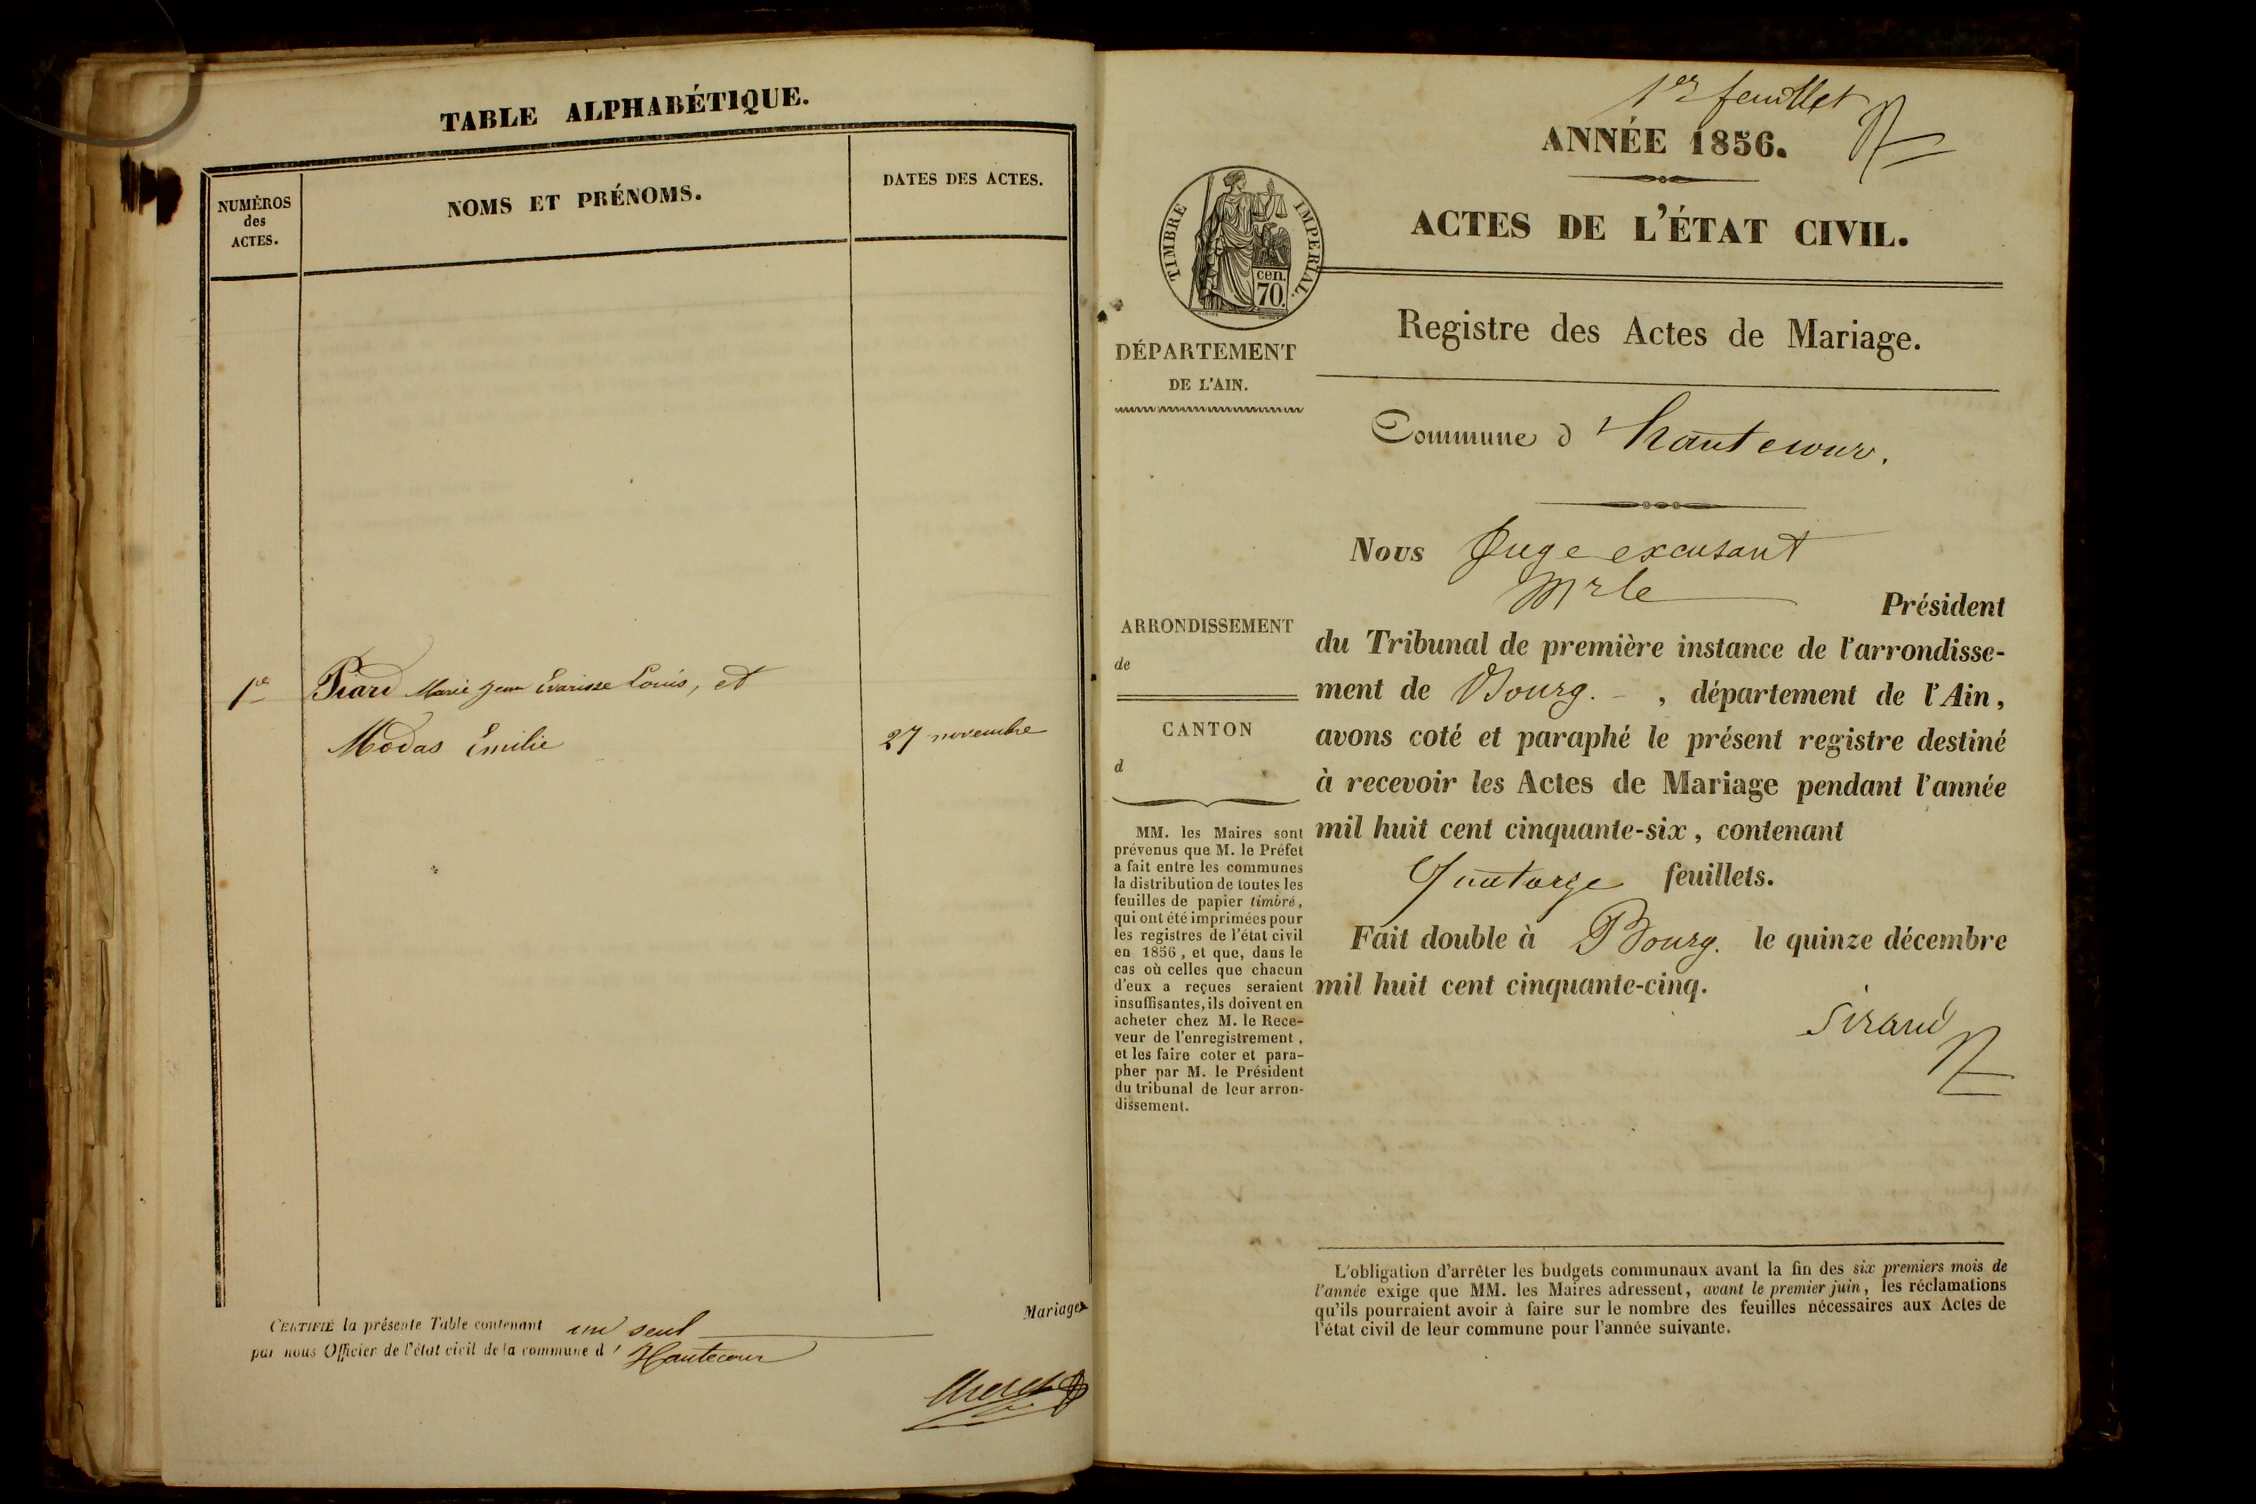 TABLE ALPHABÉTIQUE.
NUMÉROS
des
ACTES.
NOMS ET PRÉNOMS.
DATES DES ACTES.
1er Piard Marie Jean Evarisse Louis, et
Modas Emilie
27 novembre
CERTIFIÉ la présente Table contenant un seul
par nous Officier de l'état civil de la commune d' Hautecour
Mariages
1er feuillet
ANNÉE 1856.
ACTES DE L'ÉTAT CIVIL.
TIMBRE IMPERIAL.
cen.
70.
DÉPARTEMENT
DE L'AIN.
Registre des Actes de Mariage.
Commune d'hautecour.
ARRONDISSEMENT
de
CANTON
d
MM. les Maires sont
prévenus que M. le Préfet
a fait entre les communes
la distribution de toutes les
feuilles de papier timbré,
qui ont été imprimées pour
les registres de l'état civil
en 1856, et que, dans le
cas où celles que chacun
d'eux a reçues seraient
insuffisantes, ils doivent en
acheter chez M. le Rece-
veur de l'enregistrement,
et les faire coter et para-
pher par M. le Président
du tribunal de leur arron-
dissement.
Nous Juge excusant
Mr le Président
du Tribunal de première instance de l'arrondisse-
ment de Bourg. , département de l'Ain,
avons coté et paraphé le présent registre destiné
à recevoir les Actes de Mariage pendant l'année
mil huit cent cinquante-six, contenant
Quatorze feuillets.
Fait double à Bourg. le quinze décembre
mil huit cent cinquante-cinq.
Sirand
L'obligation d'arrêter les budgets communaux avant la fin des six premiers mois de
l'année exige que MM. les Maires adressent, avant le premier juin, les réclamations
qu'ils pourraient avoir à faire sur le nombre des feuilles nécessaires aux Actes de
l'état civil de leur commune pour l'année suivante.